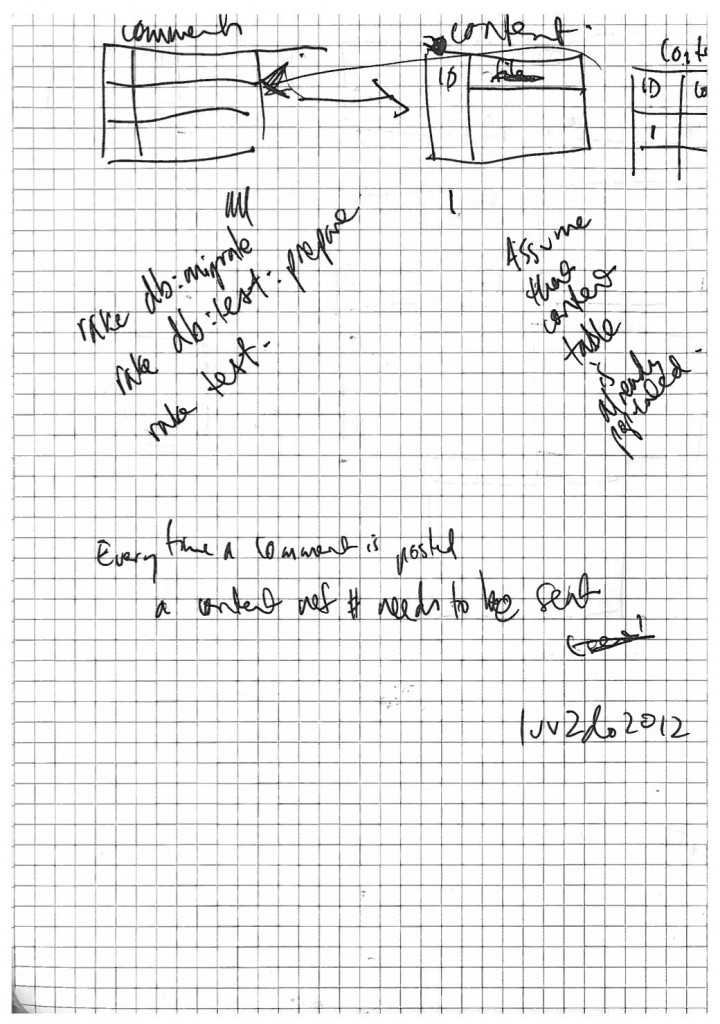 comments
content.
ID
ID
1
1
rake db:migrate
rake db:test:prepare
rake test.
Assume
that
content
table
is
already
Every time a comment is posted
a content ref # needs to be sent
luv2do2012